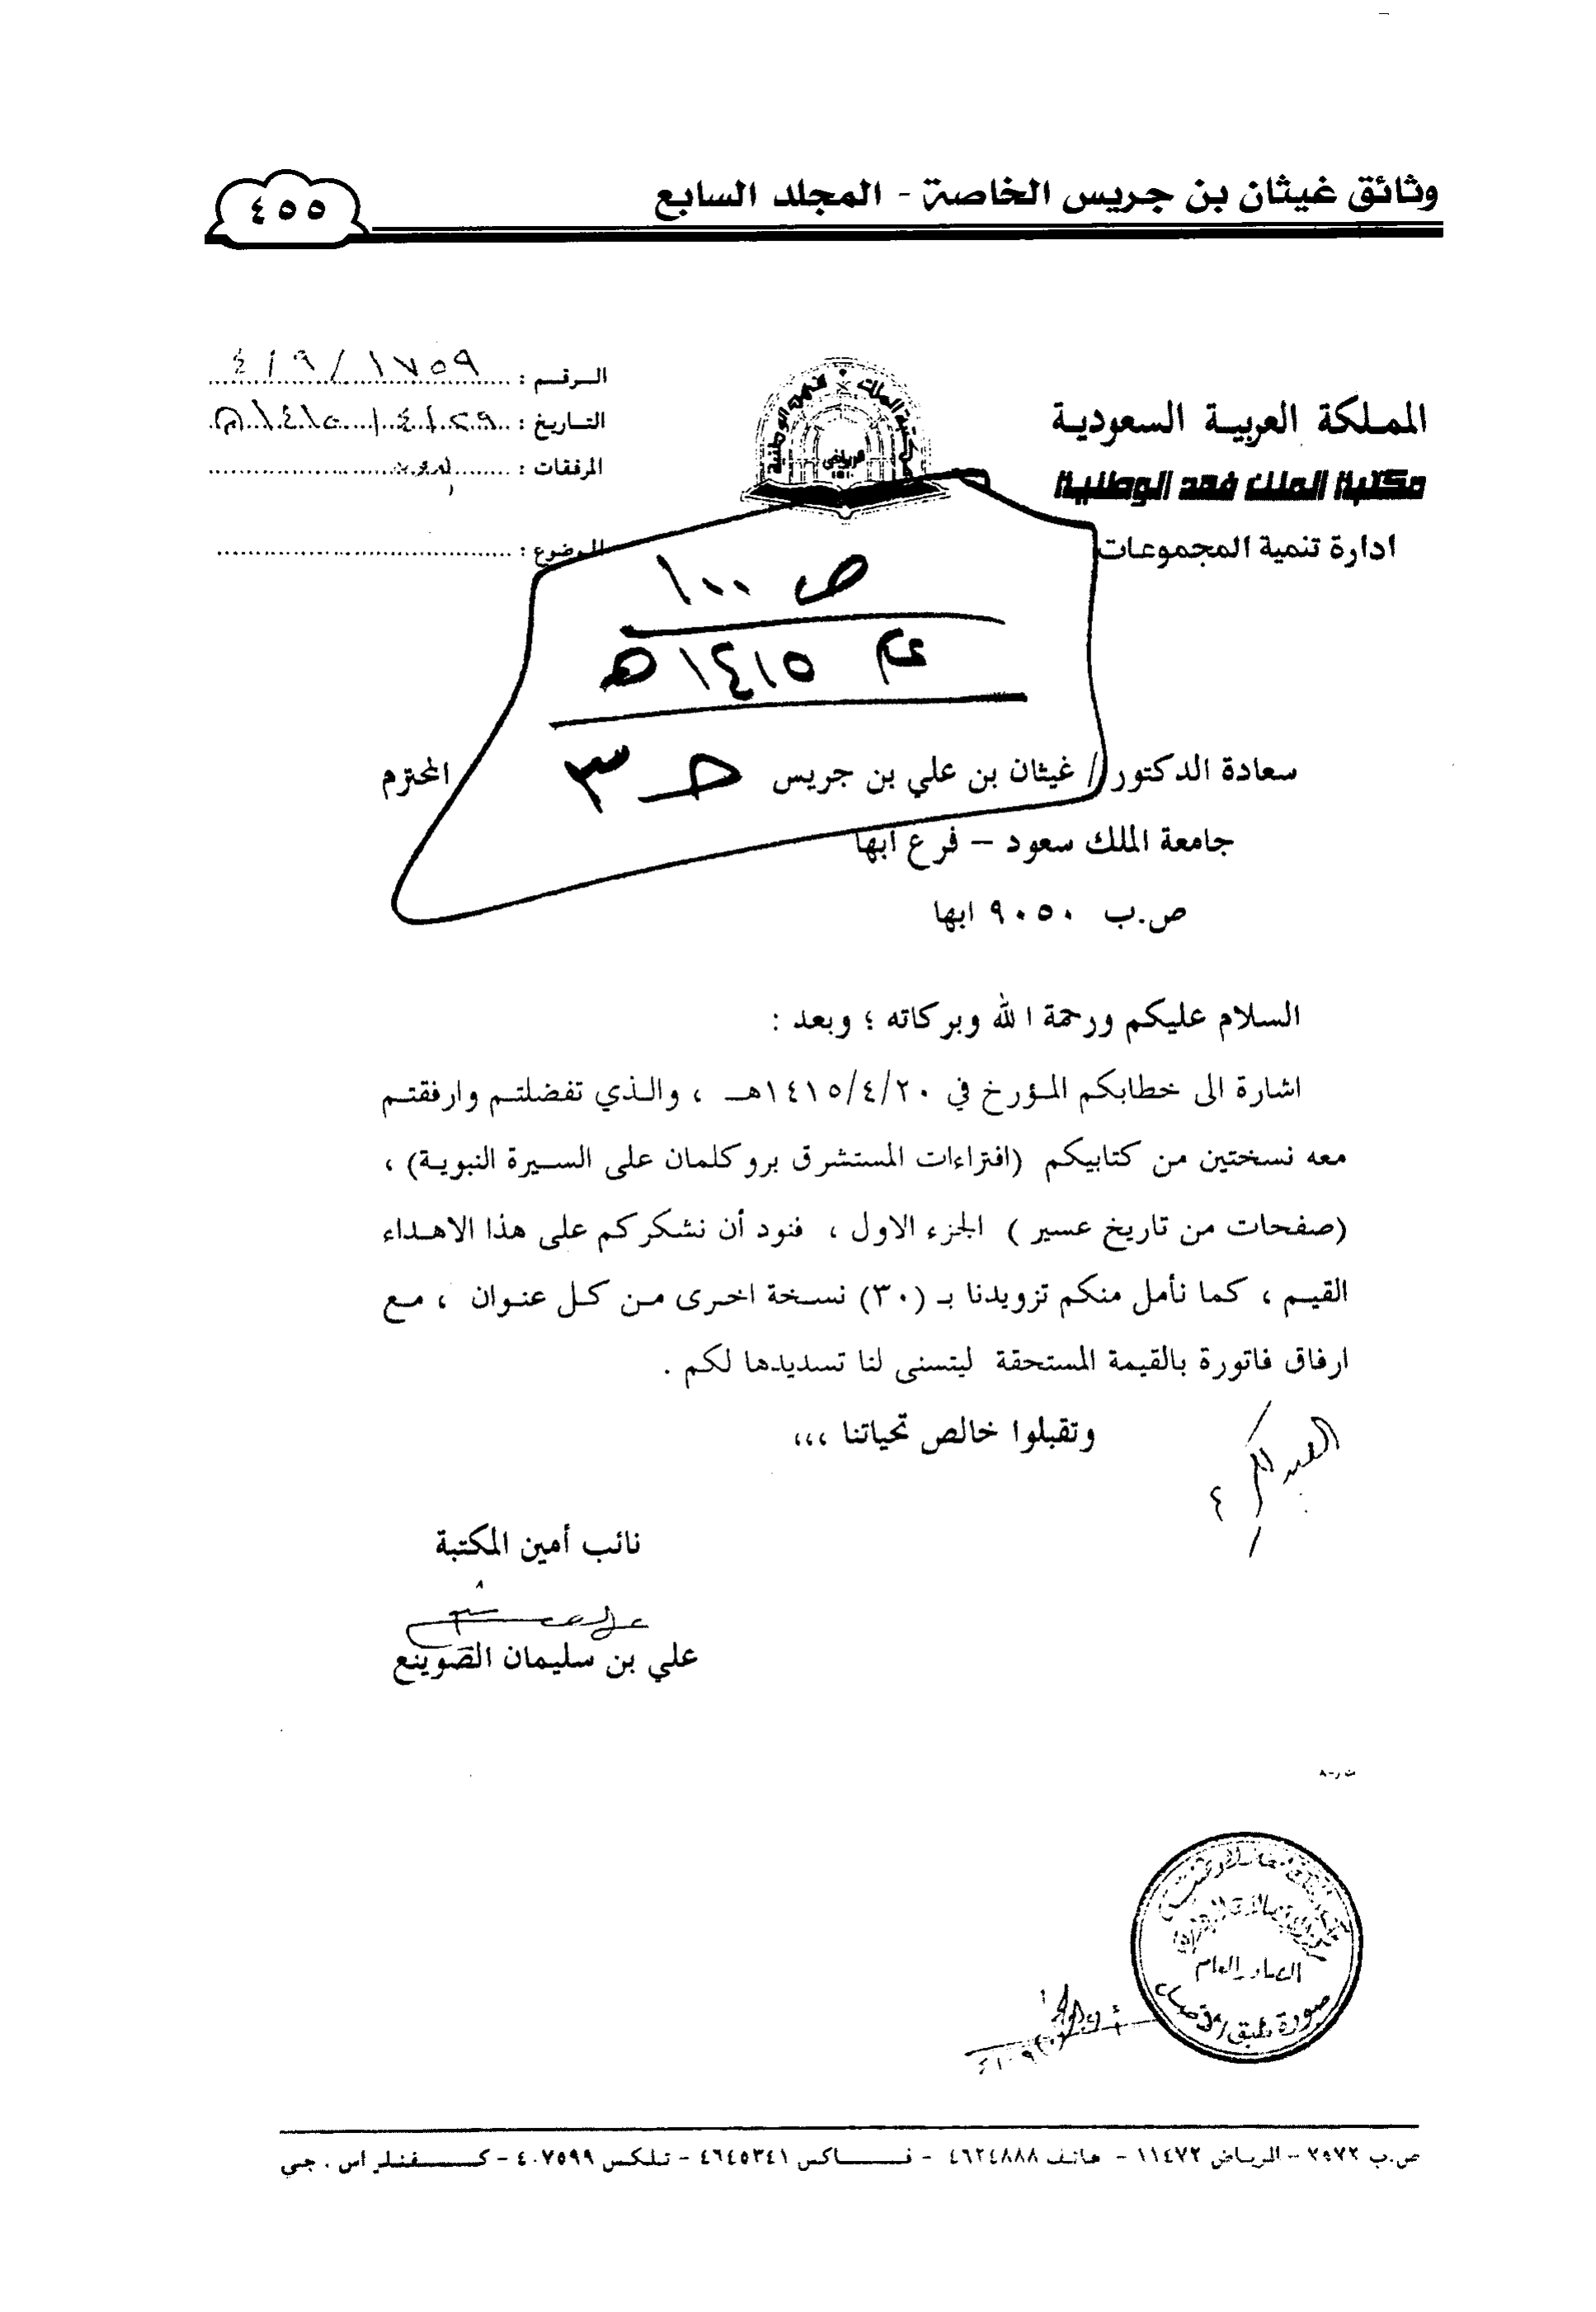 وثائق غيثان بن جريس الخاصة - المجلد السابع
٤٥٥
المملكة العربية السعودية
مكتبة الملك فهد الوطنية
ادارة تنمية المجموعات
مكتبة الملك فهد الوطنية
الرياض
الرقم : ٤١٩/١٧٥٩
التاريخ : ٢٩/٤/١٤١٥هـ
المرفقات :
الموضوع :
ص ١٠٠
عام ١٤١٥هـ
حـ ٣
سعادة الدكتور / غيثان بن علي بن جريس المحترم
جامعة الملك سعود – فرع ابها
ص.ب ٩٠٥٠ ابها
السلام عليكم ورحمة الله وبركاته ؛ وبعد :
اشارة الى خطابكم المؤرخ في ١٤١٥/٤/٢٠هـ ، والذي تفضلتم وارفقتم
معه نسختين من كتابيكم (افتراءات المستشرق بروكلمان على السيرة النبوية) ،
(صفحات من تاريخ عسير ) الجزء الاول ، فنود أن نشكركم على هذا الاهداء
القيم ، كما نأمل منكم تزويدنا بـ (٣٠) نسخة اخرى من كل عنوان ، مع
ارفاق فاتورة بالقيمة المستحقة ليتسنى لنا تسديدها لكم .
وتقبلوا خالص تحياتنا ،،،
نائب أمين المكتبة
علي بن سليمان الصوينع
صورة طبق الأصل
ص.ب ٧٥٧٢ - الرياض ١١٤٧٢ - هاتف ٤٦٢٤٨٨٨ - فاكس ٤٦٤٥٣٤١ - تلكس ٤٠٧٥٩٩ - كفنلر اس . جي